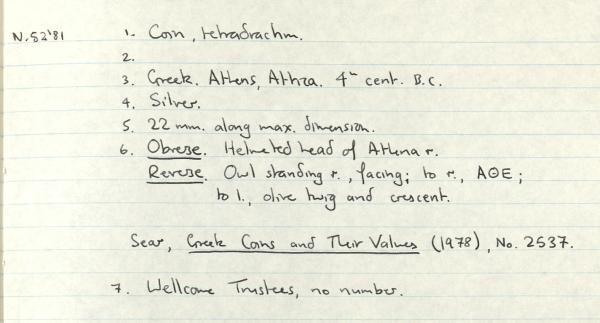 N.52'81 1. Coin, tetradrachm.
2.
3. Greek. Athens, Attica. 4th cent. B.C.
4. Silver.
5. 22 mm. along max. dimension.
6. Obverse. Helmeted head of Athena r.
Reverse. Owl standing r., facing; to r., AΘE;
to l., olive twig and crescent.
Sear, Greek Coins and Their Values (1978), No. 2537.
7. Wellcome Trustees, no number.